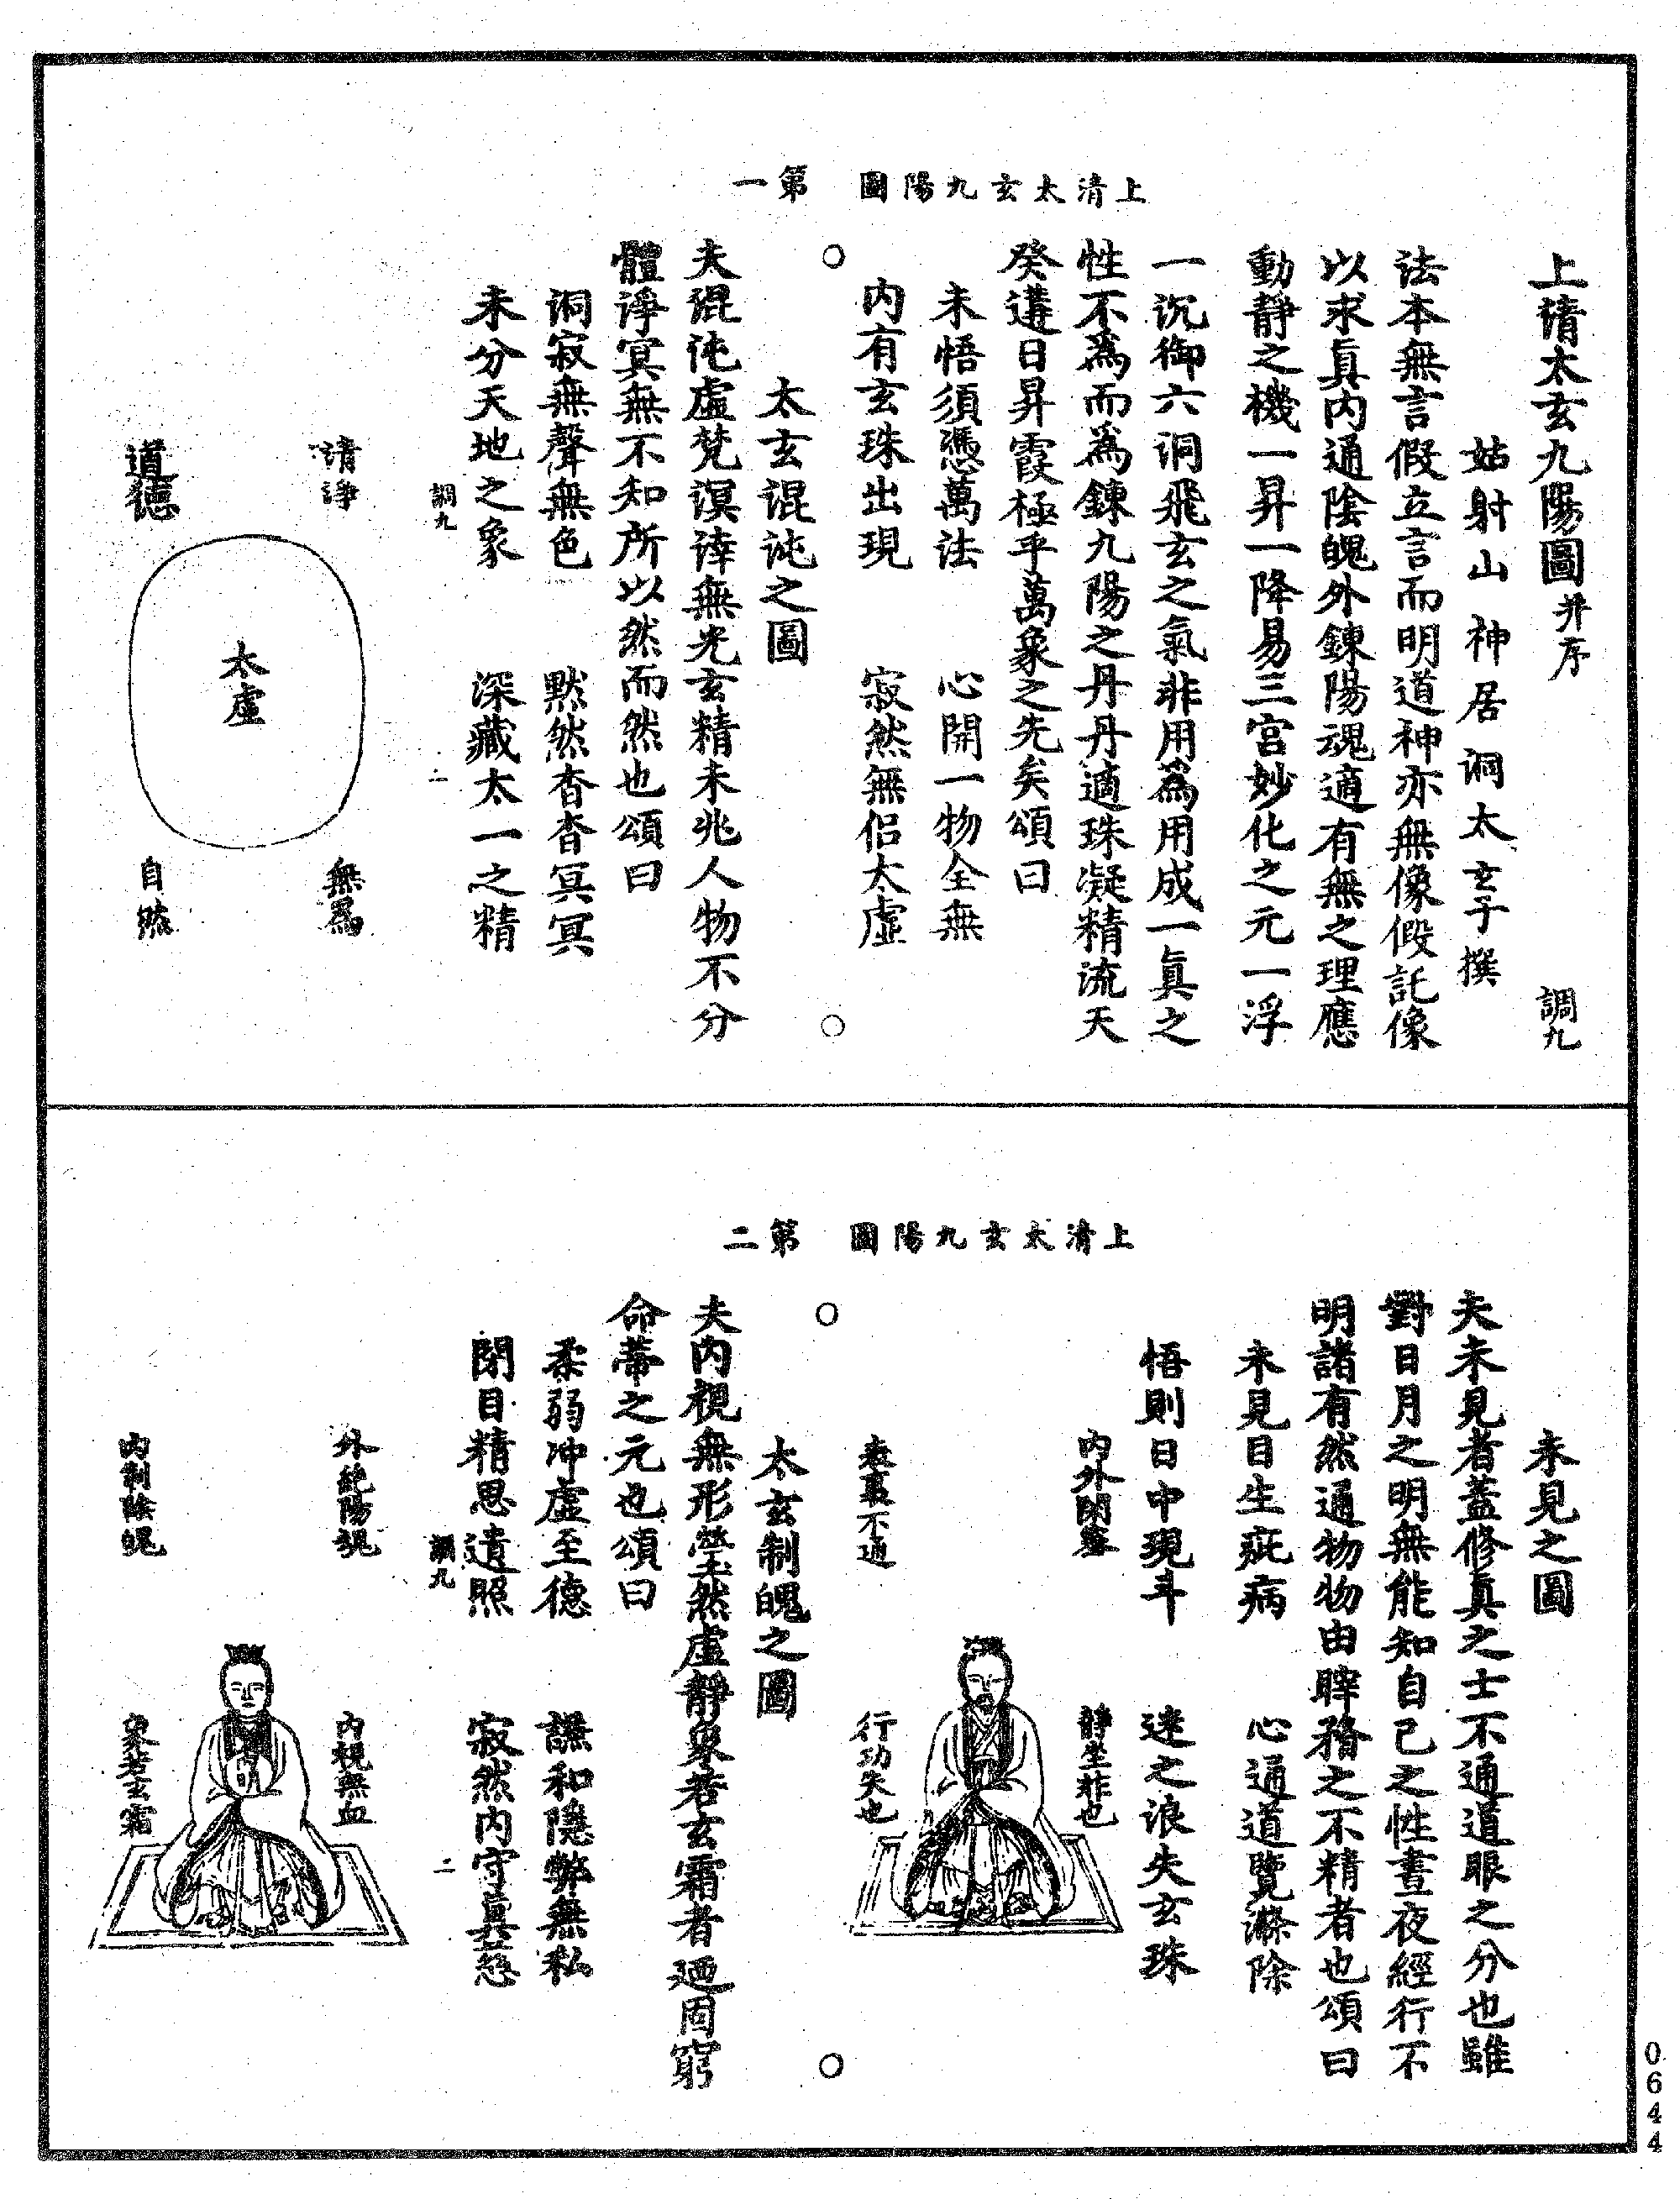 上清太玄九陽圖　第一
上清太玄九陽圖并序　調九
姑射山神居洞太玄子撰
法本無言假立言而明道神亦無像假託像
以求真内通陰魄外鍊陽魂適有無之理應
動静之機一昇一降易三宮妙化之元一浮
一沉御六洞飛玄之氣非用爲用成一真之
性不爲而爲鍊九陽之丹丹適珠凝精流天
癸遘日昇霞極乎萬象之先矣頌曰
未悟須憑萬法　心開一物全無
内有玄珠出現　寂然無侣太虚
太玄混沌之圖
夫混沌虚梵溟涬無光玄精未兆人物不分
體諍冥無不知所以然而然也頌曰
洞寂無聲無色　默然杳杳冥冥
未分天地之象　深藏太一之精
調九　一
清諍
無爲
太虚
道德
自然
上清太玄九陽圖　第二
未見之圖
夫未見者蓋修真之士不通道眼之分也雖
對日月之明無能知自己之性晝夜經行不
明諸有然通物物由睟㬿之不精者也頌曰
未見目生疵病　心通道覽滌除
悟則日中現斗　迷之浪失玄珠
内外閉塞
静坐非也
表裏不通
行功失也
太玄制魄之圖
夫内視無形瑩然虚靜象若玄霜者廼固窮
命蒂之元也頌曰
柔弱冲虚至德　謙和隱弊無私
閉目精思遺照　寂然内守真慈
調九　二
外絶陽魂
内視無血
内制陰魄
象若玄霜
0644